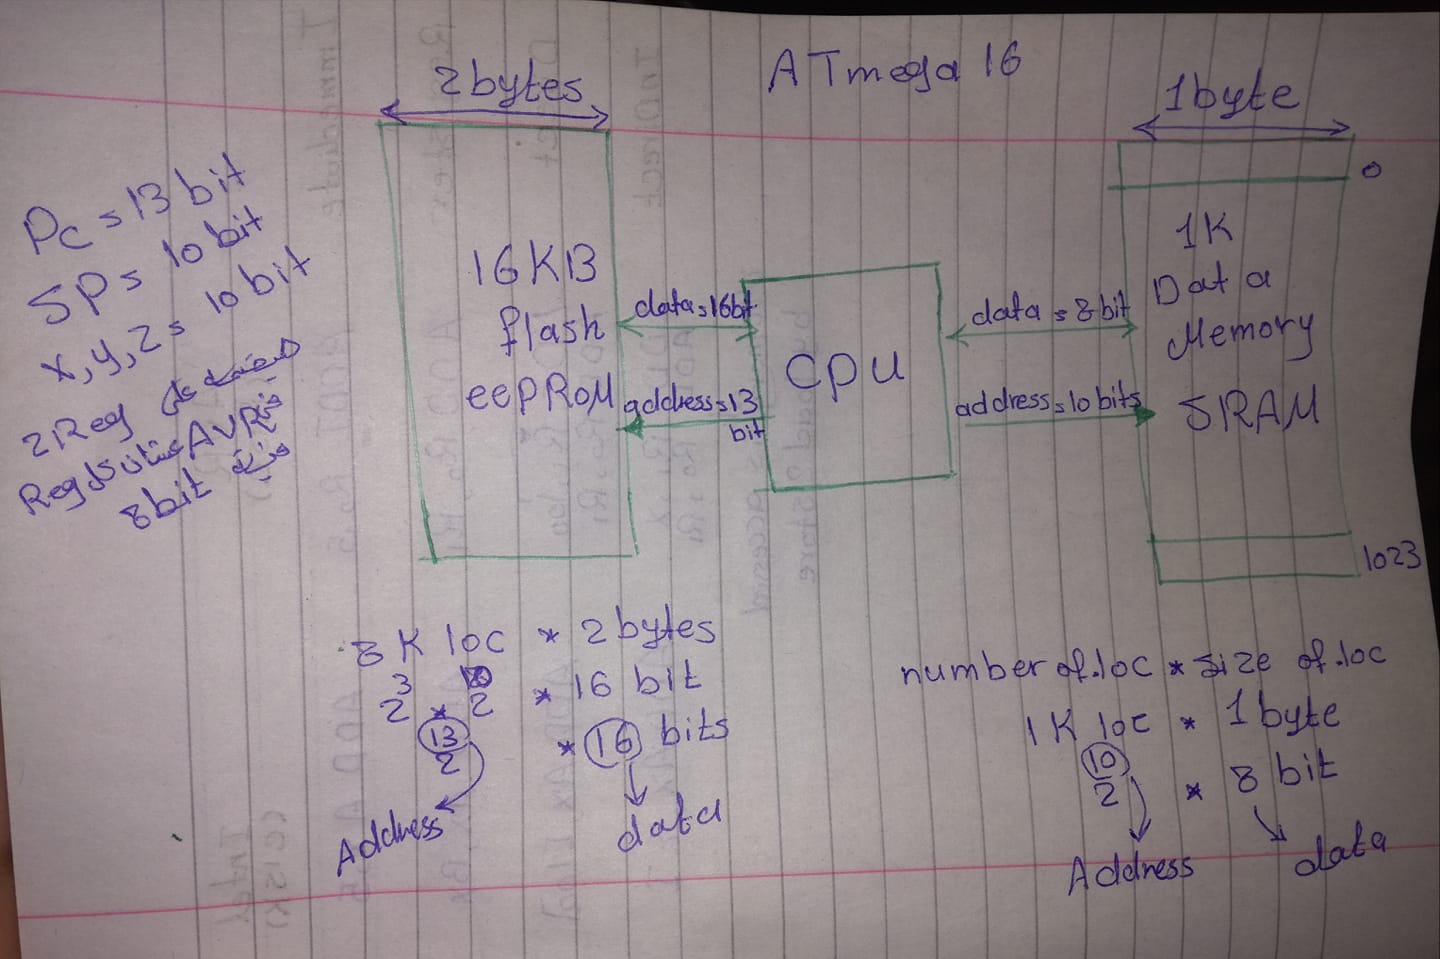 ATmega 16
2 bytes
1 byte
PC = 13 bit
SP = 10 bit
X, Y, Z = 10 bit
2 Reg
Reg AVR
8 bit
16 KB
flash
eePROM
data = 16 bit
address = 13
bit
CPU
data = 8 bit
address = 10 bits
0
1K
Data
Memory
SRAM
1023
8 K loc * 2 bytes
2^3 * 2^10 * 16 bit
2^13 * 16 bits
Address
data
number of.loc * size of.loc
1 K loc * 1 byte
2^10 * 8 bit
Address
data